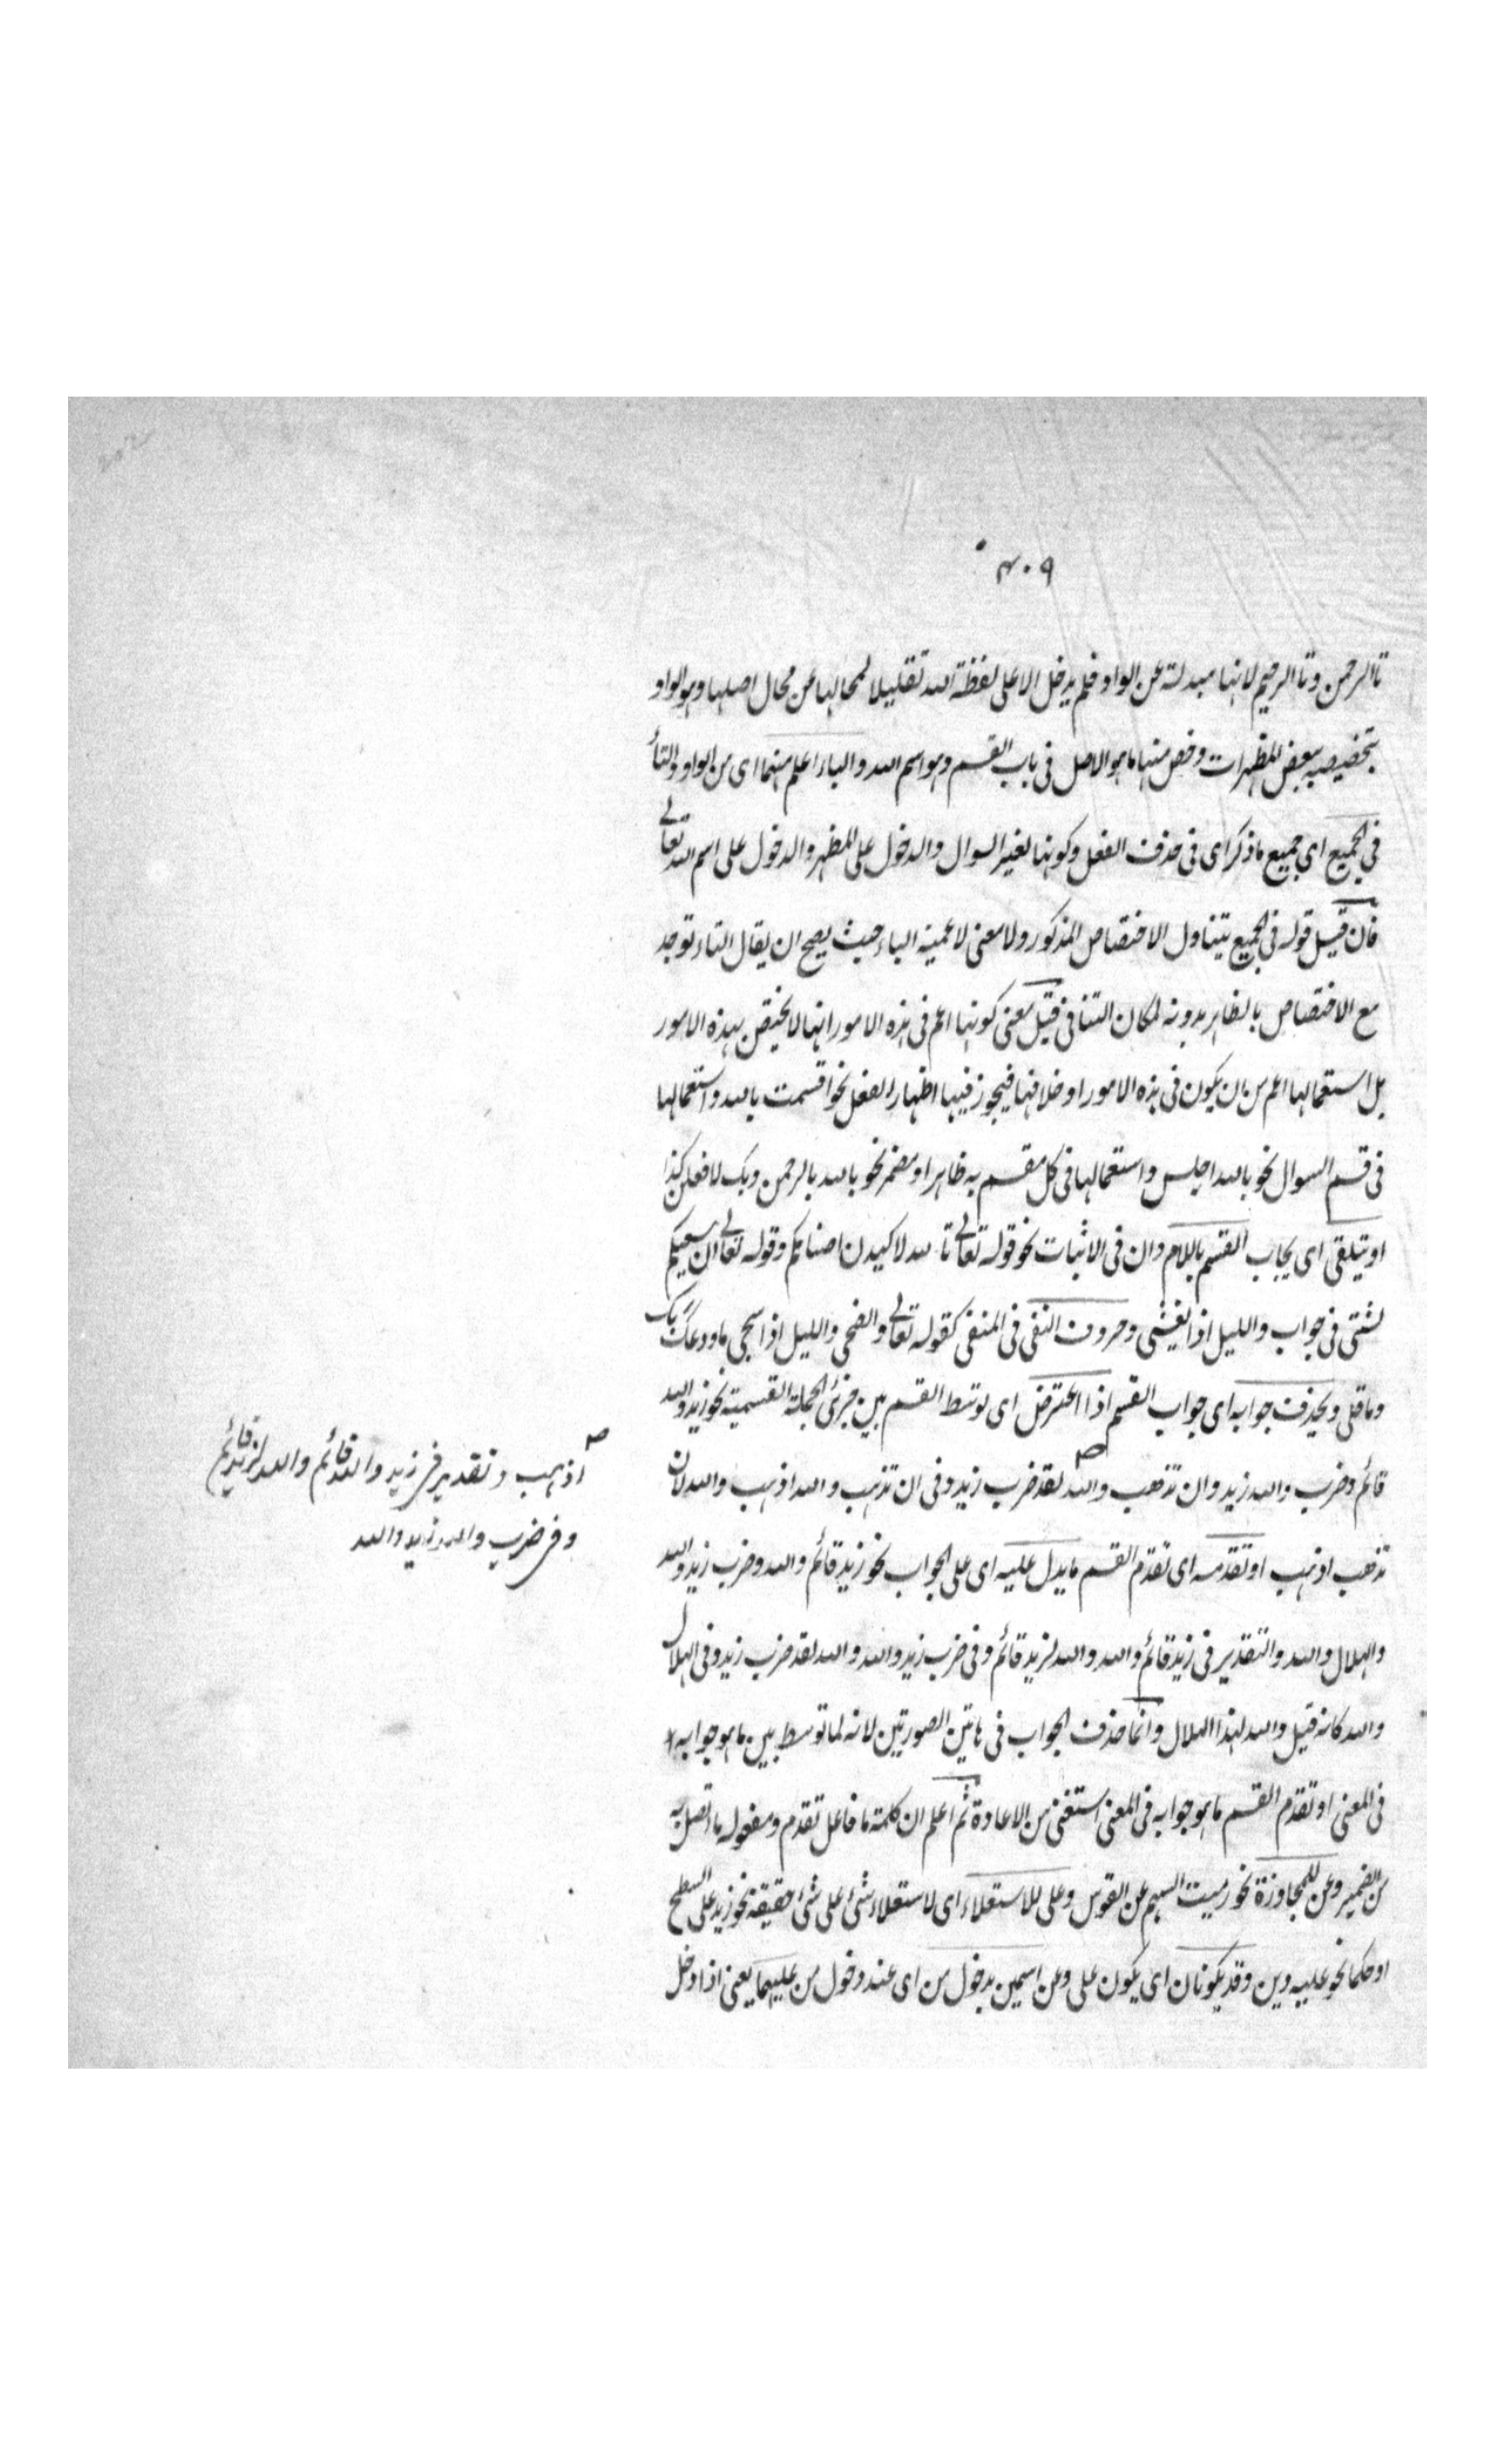 ٤٠٩
تاالرحمن وتا الرحيم لانها مبدلة عن الواو فلم يدخل الا على لفظة الله تقليلا لمحالها عن محال اصلها وهو الواو
بتخصيصه ببعض المظهرات وخص منها ما هو الاصل في باب القسم وهو اسم الله والباء اعلم منهما اى من الواو والتاء
في الجميع اى جميع ما ذكر اى فى حذف الفعل وكونها لغير السوال والدخول على المظهر والدخول على اسم الله تعالى
فان قيل قوله فى الجميع يتناول الاختصاص المذكور ولا معنى لاعمية الباء حيث يصح ان يقال التاء توجد
مع الاختصاص بالظاهر بدونه لمكان التنافى قيل معنى كونها اعم فى هذه الامور انها لا يختص بهذه الامور
بل استعمالها اعم من ان يكون فى هذه الامور او خلافها فيجوز فيها اظهار الفعل نحو اقسمت بالله واستعمالها
فى قسم السوال نحو بالله اجلس واستعمالها فى كل مقسم به ظاهر او مضمر نحو بالله بالرحمن وبك لافعلن كذا
او يتلقى اى يجاب القسم باللام وان فى الاثبات نحو قوله تعالى تا لله لاكيدن اصنامكم وقوله تعالى ان سعيكم
لشتى فى جواب والليل اذا يغشى وحروف النفى فى المنفى كقوله تعالى والضحى والليل اذا سجى ما ودعك ربك
وما قلى ويحذف جوابه اى جواب القسم اذا اعترض اى توسط القسم بين جزئى الجملة القسمية نحو زيد والله
قائم وضرب والله زيد وان تذهب والله لقد ضرب زيد وفى ان تذهب والله اذهب والله لان
تذهب اذهب او تقدمه اى تقدم القسم ما يدل عليه اى على الجواب نحو زيد قائم والله وضرب زيد والله
والهلال والله والتقدير فى زيد قائم والله والله لزيد قائم وفى ضرب زيد والله والله لقد ضرب زيد وفى الهلال
والله كانه قيل والله لهذا الهلال وانما حذف الجواب فى هاتين الصورتين لانه لما توسط بين ما هو جوابه
فى المعنى او تقدم القسم ما هو جوابه فى المعنى استغنى من الاعادة ثم اعلم ان كلمة ما فاعل تقدم ومفعوله ما اتصل به
من الضمير وعن للمجاوزة نحو رميت السهم عن القوس وعلى للاستعلاء اى لاستعلاء شئ على شئ حقيقة نحو زيد على السطح
او حكما نحو عليه دين وقد يكونان اى يكون على وعن اسمين بدخول من اى عند دخول من عليهما يعنى اذا دخل
اذهب وتقدير فى زيد والله قائم والله لزيد قائم
وفى ضرب والله زيد والله